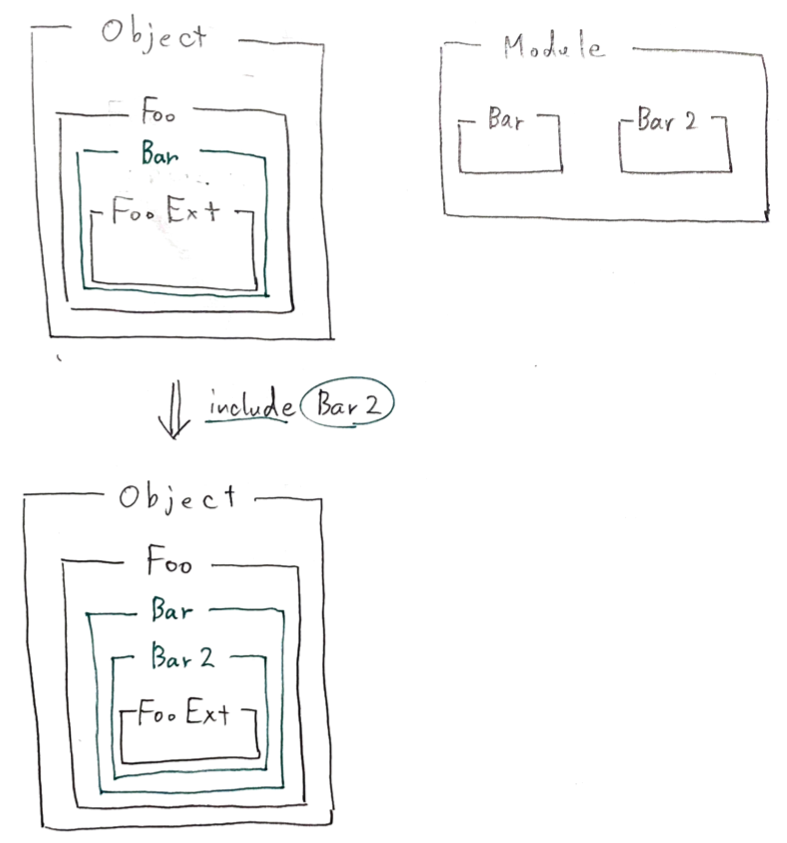 Object
Foo
Bar
Foo Ext
Module
Bar
Bar 2
include Bar 2
Object
Foo
Bar
Bar 2
Foo Ext